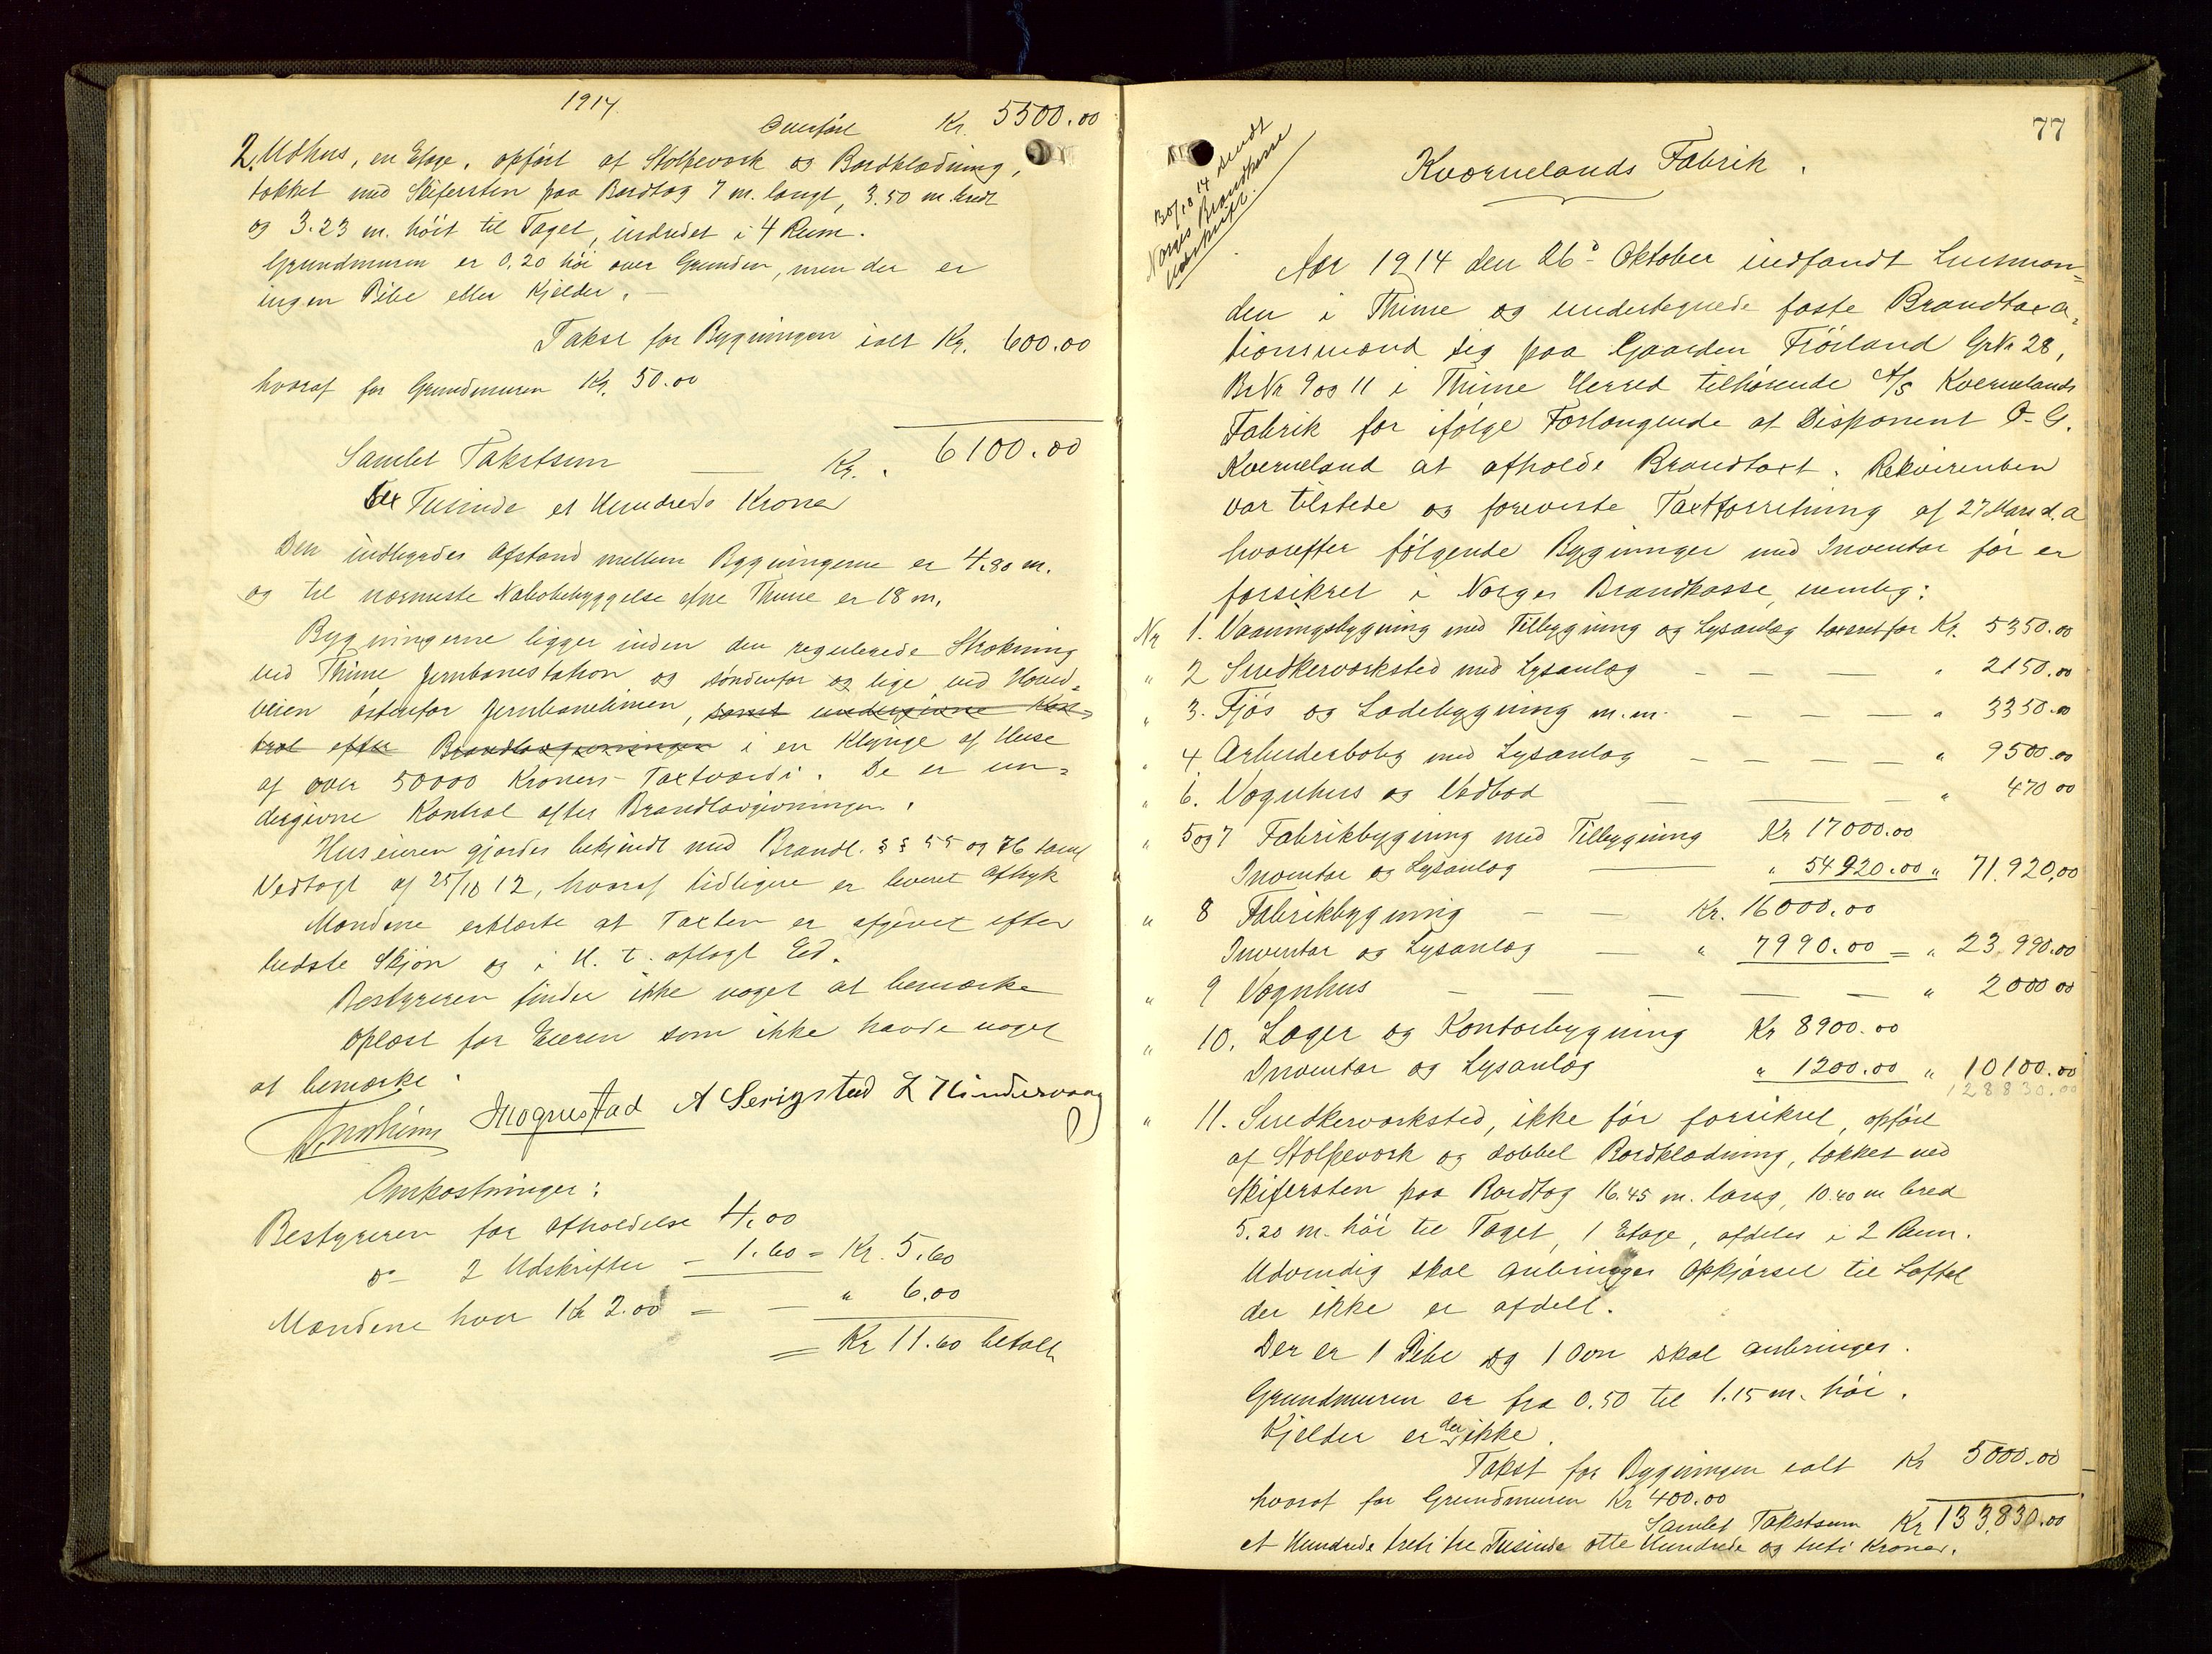 1914.
Overført Kr. 5500.00
2. Udhus, en Etage, opført af Stolpeverk og Bordklædning,
tækket med Skifersten paa Bordtag 7 m. langt, 3.50 m. bredt
og 3.23 m. høit til Taget, indredet i 4 Rum.
Grundmuren er 0.20 høi over Grunden, men der er
ingen Pibe eller Kjelder. —
Takst for Bygningen ialt Kr. 600.00
hvoraf for Grundmuren Kr. 50.00
Samlet Takstsum — Kr. 6100.00
Sex Tusinde et Hundrede Kroner
Den indbyrdes Afstand mellem Bygningerne er 4.80 m.
og til nærmeste Nabobebyggelse Thime er 18 m.
Bygningerne ligger inden den regulerede Strækning
ved Thime Jernbanestation og søndenfor og lige ved Hoved=
veien østenfor Jernbanelinien, samt undergivne Kon=
trol efter Brandlovgivningen i en Klynge af Huse
af over 50000 Kroners Taxtværdi. De er un=
dergivne Kontrol efter Brandlovgivningen.
Huseieren gjordes bekjendt med Brandl. §§ 55 og 76 samt
Vedtægt af 25/10 12, hvoraf tidligere er leveret Aftryk
Mændene erklærte at Taxten er afgivet efter
bedste Skjøn og i H. t. aflagt Ed.
Bestyreren finder ikke noget at bemærke
Oplæst for Eieren som ikke havde noget
at bemærke.
Mognestad A Serigstad L Hindervaag
Omkostninger:
Bestyreren for Afholdelse 4.00
do 2 Udskrifter — 1.60 = Kr. 5.60
Mændene hver Kr 2.00 = — " 6.00
= Kr 11.60 betalt
77
30/10 14 sendt
Norges Brandkasse
Udskrift.
Kvernelands Fabrik.
Aar 1914 den 26de Oktober indfandt Lensman=
den i Thime og undertegnede faste Brandtaxa=
tionsmænd sig paa Gaarden Frøiland GrNr 28,
BrNr 9 og 11 i Thime Herred tilhørende A/S Kvernelands
Fabrik for ifølge Forlangende af Disponent O. G.
Kverneland at afholde Brandtaxt. Rekvirenten
var tilstede og foreviste Taxtforretning af 27 Mars d.a
hvorefter følgende Bygninger med Inventar før er
forsikret i Norges Brandkasse, nemlig:
Nr 1. Vaaningsbygning med Tilbygning og Lysanlæg taxeret for Kr. 5350.00
" 2 Snedkerværksted med Lysanlæg — — — " 2150.00
" 3. Fjøs og Ladebygning m.m. — — — " 3350.00
" 4 Arbeiderbolig med Lysanlæg — — — — " 9500.00
" 6. Vognhus og Vedbod — — — " 470 00
" 5 og 7 Fabrikbygning med Tilbygning Kr 17000.00
Inventar og Lysanlæg — " 54920.00 " 71,920,00
" 8 Fabrikbygning — — Kr. 16000.00
Inventar og Lysanlæg — " 7990.00 = " 23,990.00
" 9 Vognhus — — — — — " 2000 00
" 10. Lager og Kontorbygning Kr 8900.00
Inventar og Lysanlæg " 1200.00 " 10100.00
128830.00
" 11. Snedkerværksted, ikke før forsikret, opført
af Stolpeværk og dobbel Bordklædning, tækket med
Skifersten paa Bordtag 16.45 m. lang, 10.40 m bred
5.20 m. høi til Taget, 1 Etage, afdeles i 2 Rum.
Udvendig skal anbringes Opkjørsel til Loftet
der ikke er afdelt.
Der er 1 Pibe og 1 Ovn skal anbringes.
Grundmuren er fra 0.50 til 1.15 m. høi.
Kjelder er der ikke.
Takst for Bygningen ialt Kr 5000.00
hvoraf for Grundmuren Kr 400.00
Samlet Takstsum Kr 133,830.00
et Hundrede treti tre Tusinde otte Hundrede og treti Kroner.